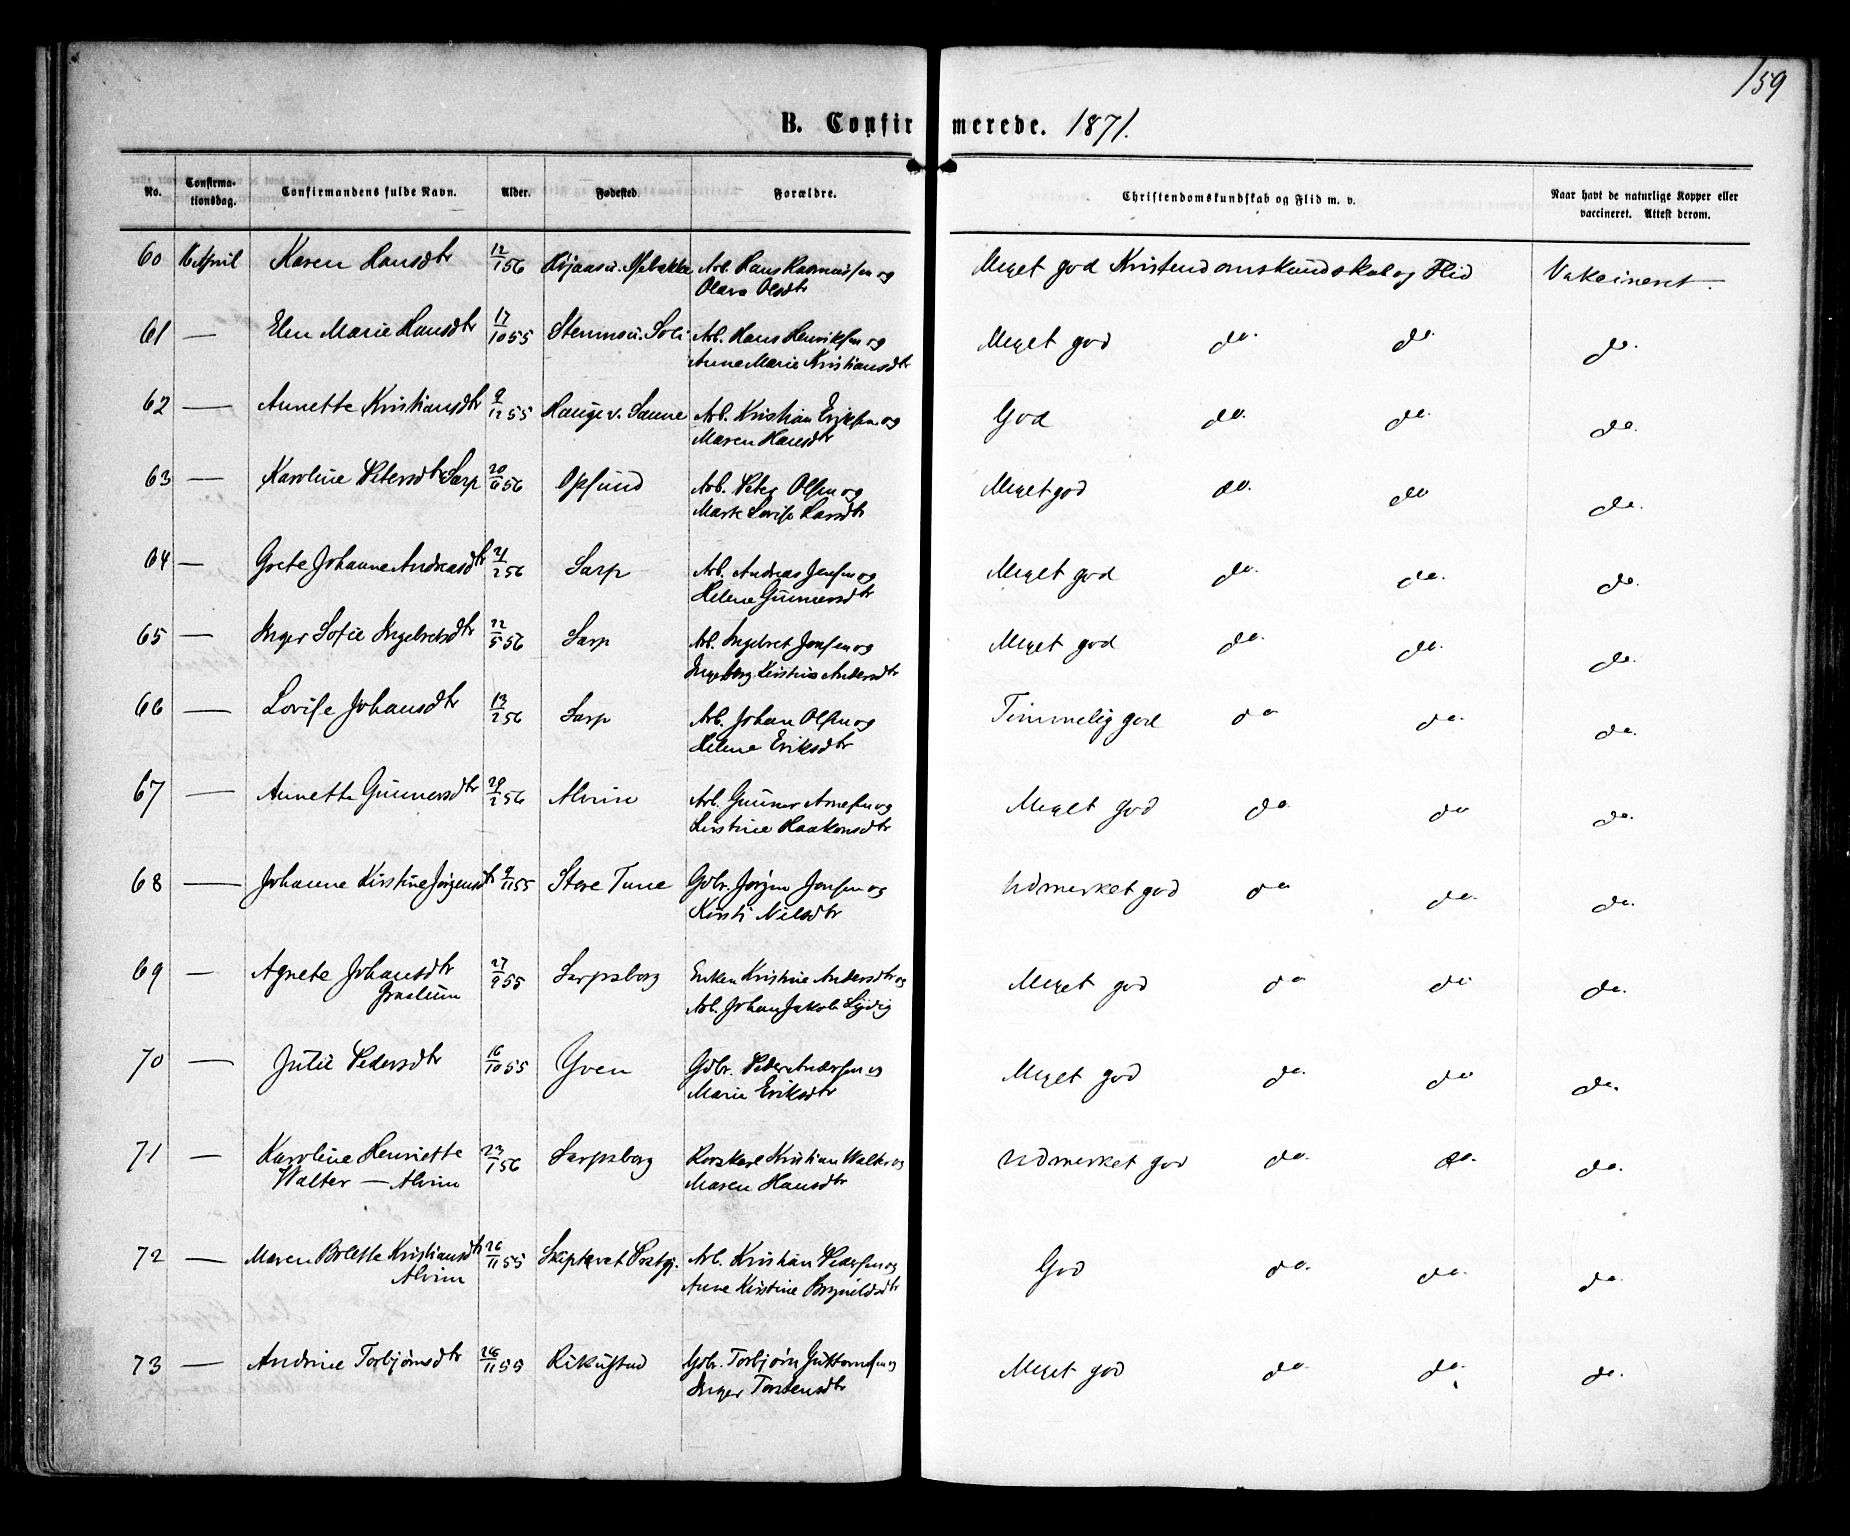 159
B. Confirmerede. 1871.
No. Confirma-tionsdag. Confirmandens fulde Navn. Alder. Fødested. Forældre. Christendomskundskab og Flid m. v. Naar havt de naturlige Kopper eller vaccineret. Attest derom.
60 16 April Karen Hansdtr 12/1 56 Arb. Hans Rasmussen og Meget god Kristendomskundskab og Flid Vakcineret.
Olava Olsdtr
61 — Elen Marie Hansdtr 17/10 55 Stenmou. Soli Arb. Hans Henriksen og Meget god do. do. do.
Anne Marie Kristiansdtr
62 — Annette Kristiansdtr 9/12 55 Hauge v. Sanne Arb. Kristian Eriksen og God do. do. do.
Maren Hansdtr
63 — Karoline Petersdtr Sarp 20/6 56 Opsund Arb. Peter Olsen og Meget god do. do do.
Marte Lovise Larsdtr
64 — Grete Johanne Andreasdtr 21/2 56 Sarp Arb. Andreas Jensen og Meget god do. do. do.
Helene Gunnersdtr
65 — Inger Sofie Ingebretsdtr 22/5 56 Sarp Arb. Ingebret Jensen og Meget god do. do. do.
Ingeborg Kirstine Andersdtr
66 — Lovise Johansdtr 13/2 56 Sarp Arb. Johan Olsen og Temmelig god do do. do.
Helene Eriksdtr
67 — Annette Gunnersdtr 29/2 56 Alvim Arb. Gunner Arnesen og Meget god do do do.
Kirstine Haakensdtr
68 — Johanne Kirstine Jørgensdtr 9/11 55 Store Tune Gdbr. Jørgen Jensen og Udmerket god do do. do.
Kirsti Nilsdtr
69 — Agnete Johansdtr 27/9 55 Sarpsborg Enken Kristine Andersdtr og Meget god do do do.
Graalum Arb. Johan Jakob Lydig
70 — Julie Pedersdtr 16/10 55 Yven Gdbr. Peder Andersen og Meget god do. do do.
Marie Eriksdtr
71 — Karoline Henriette 23/1 56 Sarpsborg Korskarl Kristian Walter og Udmerket god do. do. do.
Walter — Alvim Maren Hansdtr
72 — Maren Bolette Kristiansdtr 26/11 55 Skiptvet Prstgj. Arb. Kristian Pedersen og God do. do. do.
Alvim Anne Kirstine Brynildsdtr
73 — Andrine Torbjørnsdtr 26/11 55 Rikustad Gdbr. Torbjørn Guttormsen og Meget god do. do. do.
Inger Torstensdtr